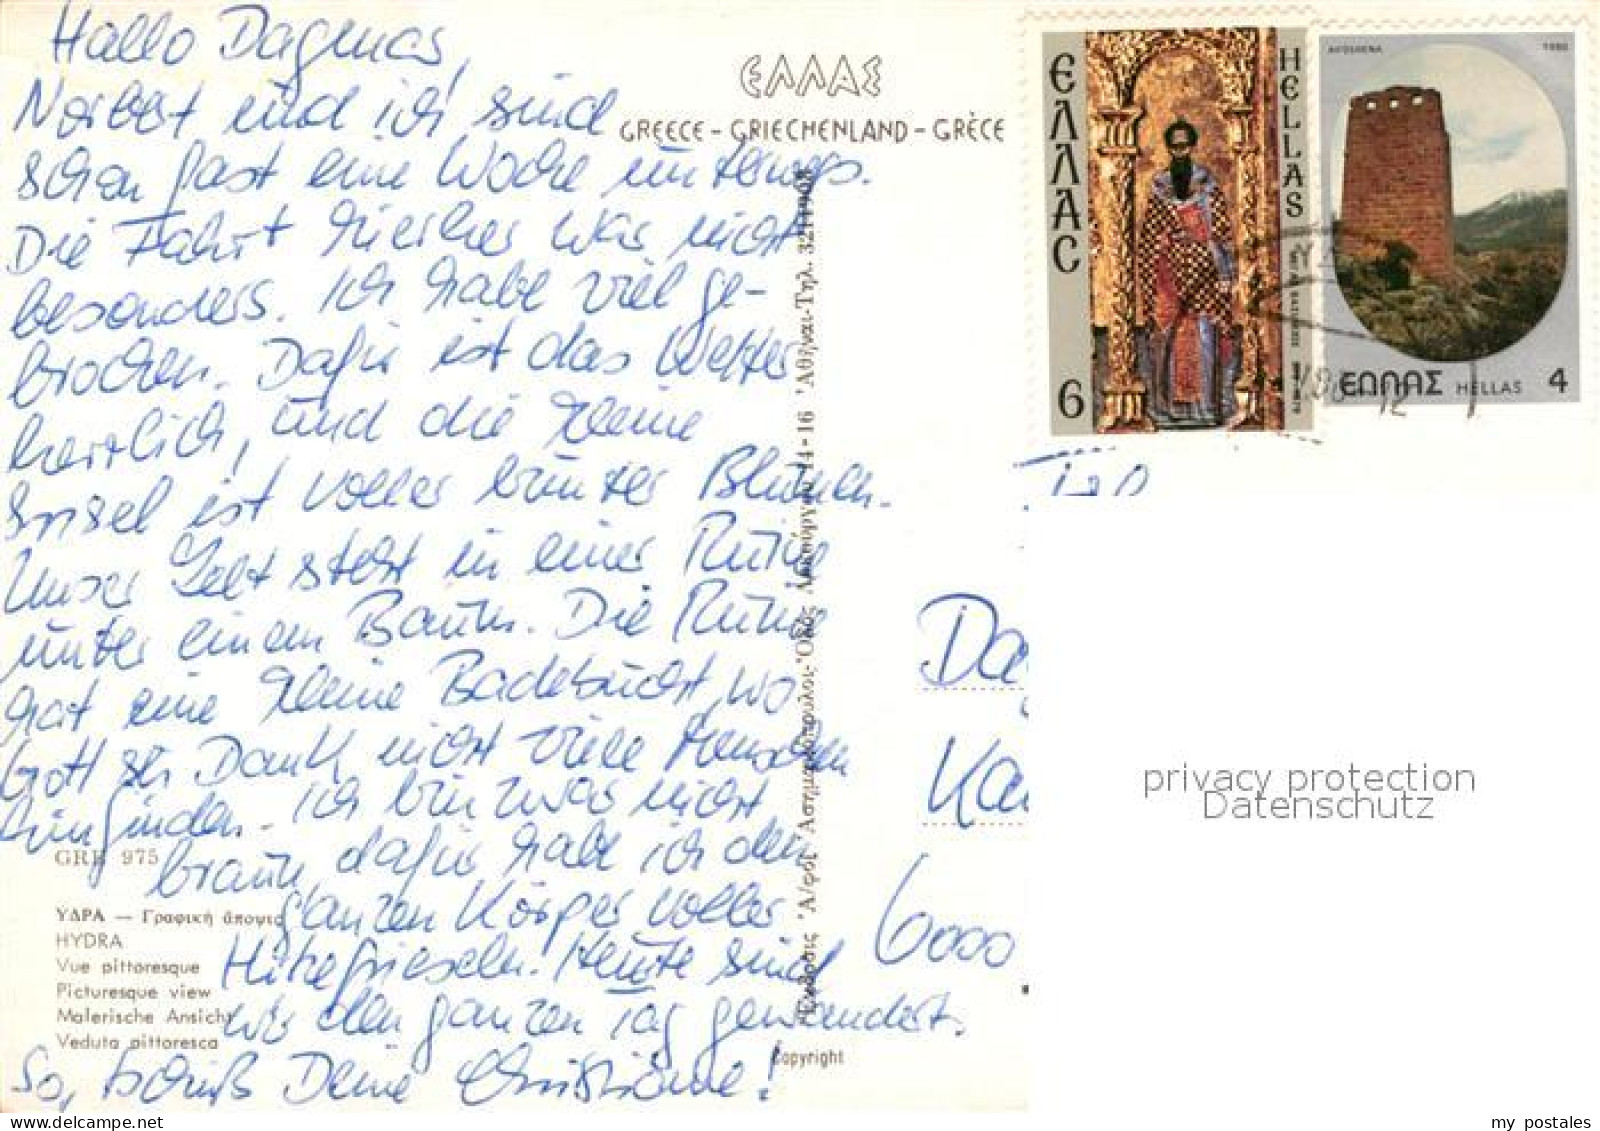 Hallo Dagmar,
Norbert und ich sind
schon fast eine Woche unterwegs.
Die Fahrt hierher war nicht
besonders. Ich habe viel ge-
brochen. Dafür ist das Wetter
herrlich, und die kleine
Insel ist voller bunter Blumen.
Unser Zelt steht in einer Ruine
unter einem Baum. Die Ruine
hat eine kleine Badebucht, wo
Gott sei Dank nicht viele Menschen
hinfinden. Ich bin zwar nicht
braun dafür habe ich den
ganzen Körper voller
Hitzefrieseln. Heute sind
wir den ganzen Tag gewandert.
So, tschüß Deine Christiane!
GRE 975
ΥΔΡΑ — Γραφική άποψις
HYDRA
Vue pittoresque
Picturesque view
Malerische Ansicht
Veduta pittoresca
ΕΛΛΑΣ
GREECE - GRIECHENLAND - GRÈCE
Ἐκδόσεις Ἀ/φοί Ἀσημακόπουλοι - Ὁδός Λυκούργου 14-16 Ἀθῆναι - Τηλ.
Copyright
ΕΛΛΑC
HELLAS
6
1980
ΕΛΛΑΣ HELLAS 4
Da
Ka
6000
privacy protection
Datenschutz
my postales